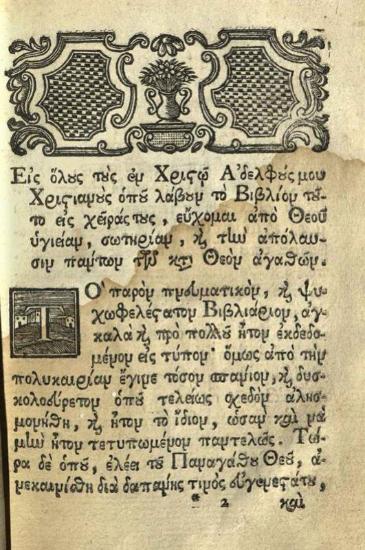 Εἰς ὅλους τοὺς ἐν Χριστῷ Ἀδελφούς μου
Χριστιανοὺς ὁποῦ λάβουν τὸ Βιβλίον τοῦ-
το εἰς χεῖράς τους, εὔχομαι ἀπὸ Θεοῦ
ὑγιείαν, σωτηρίαν, καὶ τὴν ἀπόλαυ-
σιν πάντων τῶν κατὰ Θεὸν ἀγαθῶν.
ΤΟ' παρὸν πνευματικὸν, καὶ ψυ-
χωφελέςατον Βιβλιάριον, ἀγ-
καλὰ καὶ πρὸ πολλοῦ ἦτον ἐκδεδο-
μένον εἰς τύπον· ὅμως ἀπὸ τὴν
πολυκαιρίαν ἔγινε τόσον σπάνιον, καὶ δυσ-
κολοεύρετον ὁποῦ τελείως σχεδὸν ἀλησ-
μονήθη, καὶ ἦτον τὸ ἴδιον, ὡσὰν καὶ νὰ
μὴν ἦτον τετυπωμένον παντελῶς. Τώ-
ρα δὲ ὁποῦ, ἐλέει τοῦ Παναγάθου Θεοῦ, ἀ-
νεκαινίσθη διὰ δαπάνης τινὸς εὐγενεςάτου,
* 2 καὶ